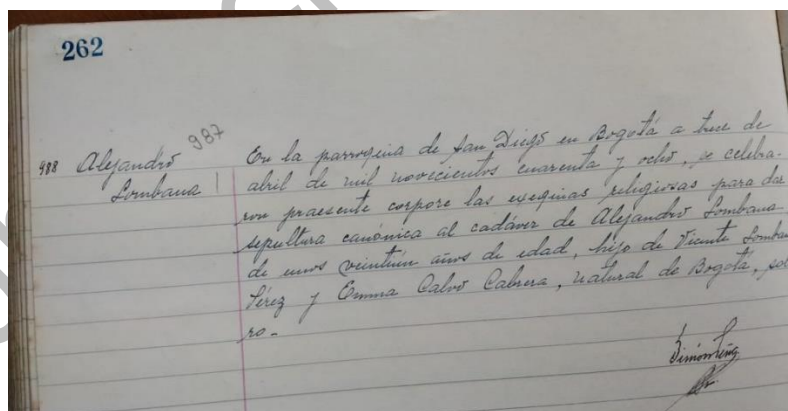 262
987
488 Alejandro
Lombana
En la parroquia de San Diego en Bogotá a trece de
abril de mil novecientos cuarenta y ocho, se celebra-
ron praesente corpore las exequias religiosas para dar
sepultura canónica al cadáver de Alejandro Lombana
de unos veintiún años de edad, hijo de Vicente Lomba
Pérez y Emma Calvo Cabrera, natural de Bogotá, solte
ro-
Simón